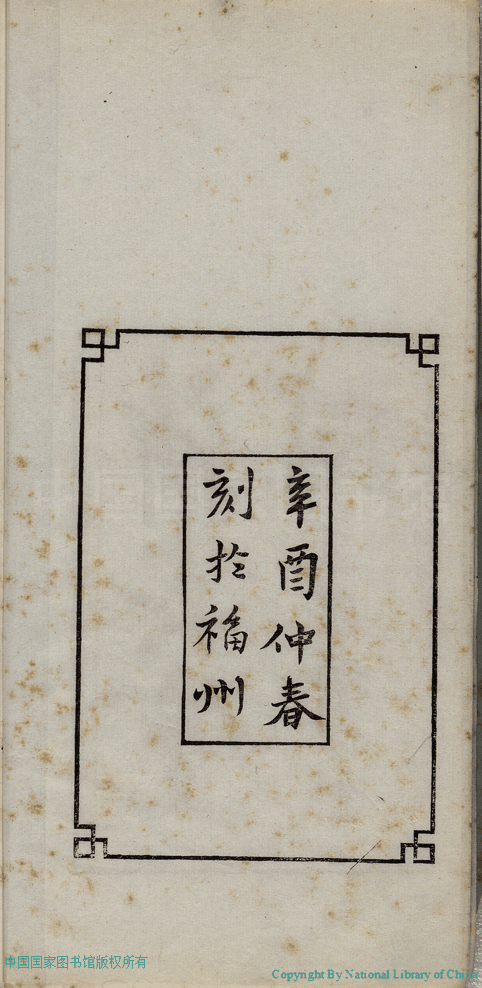 辛酉仲春
刻於福州
中国国家图书馆版权所有
Copyright By National Library of China